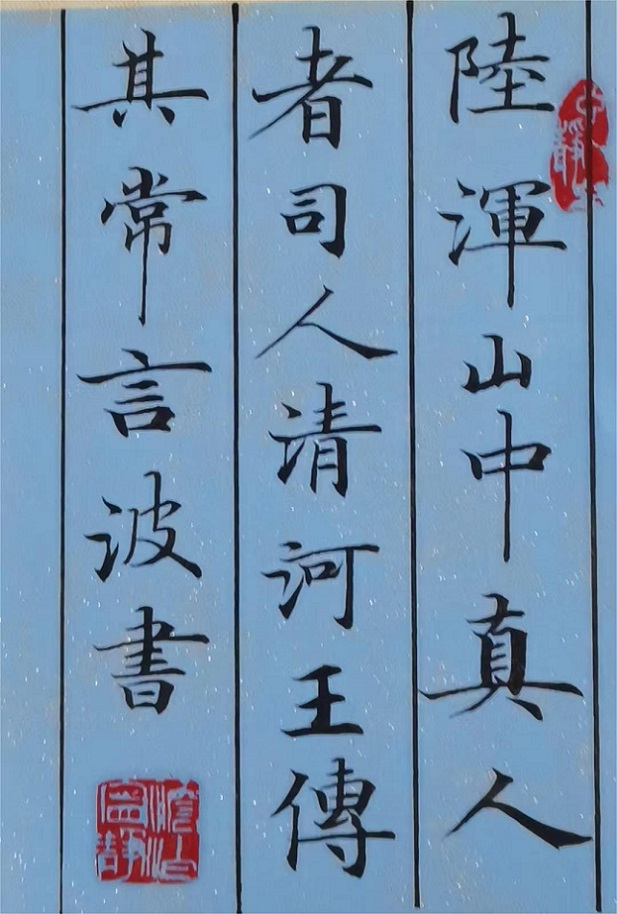 陸渾山中真人
者司人清河王傳
其常言波書